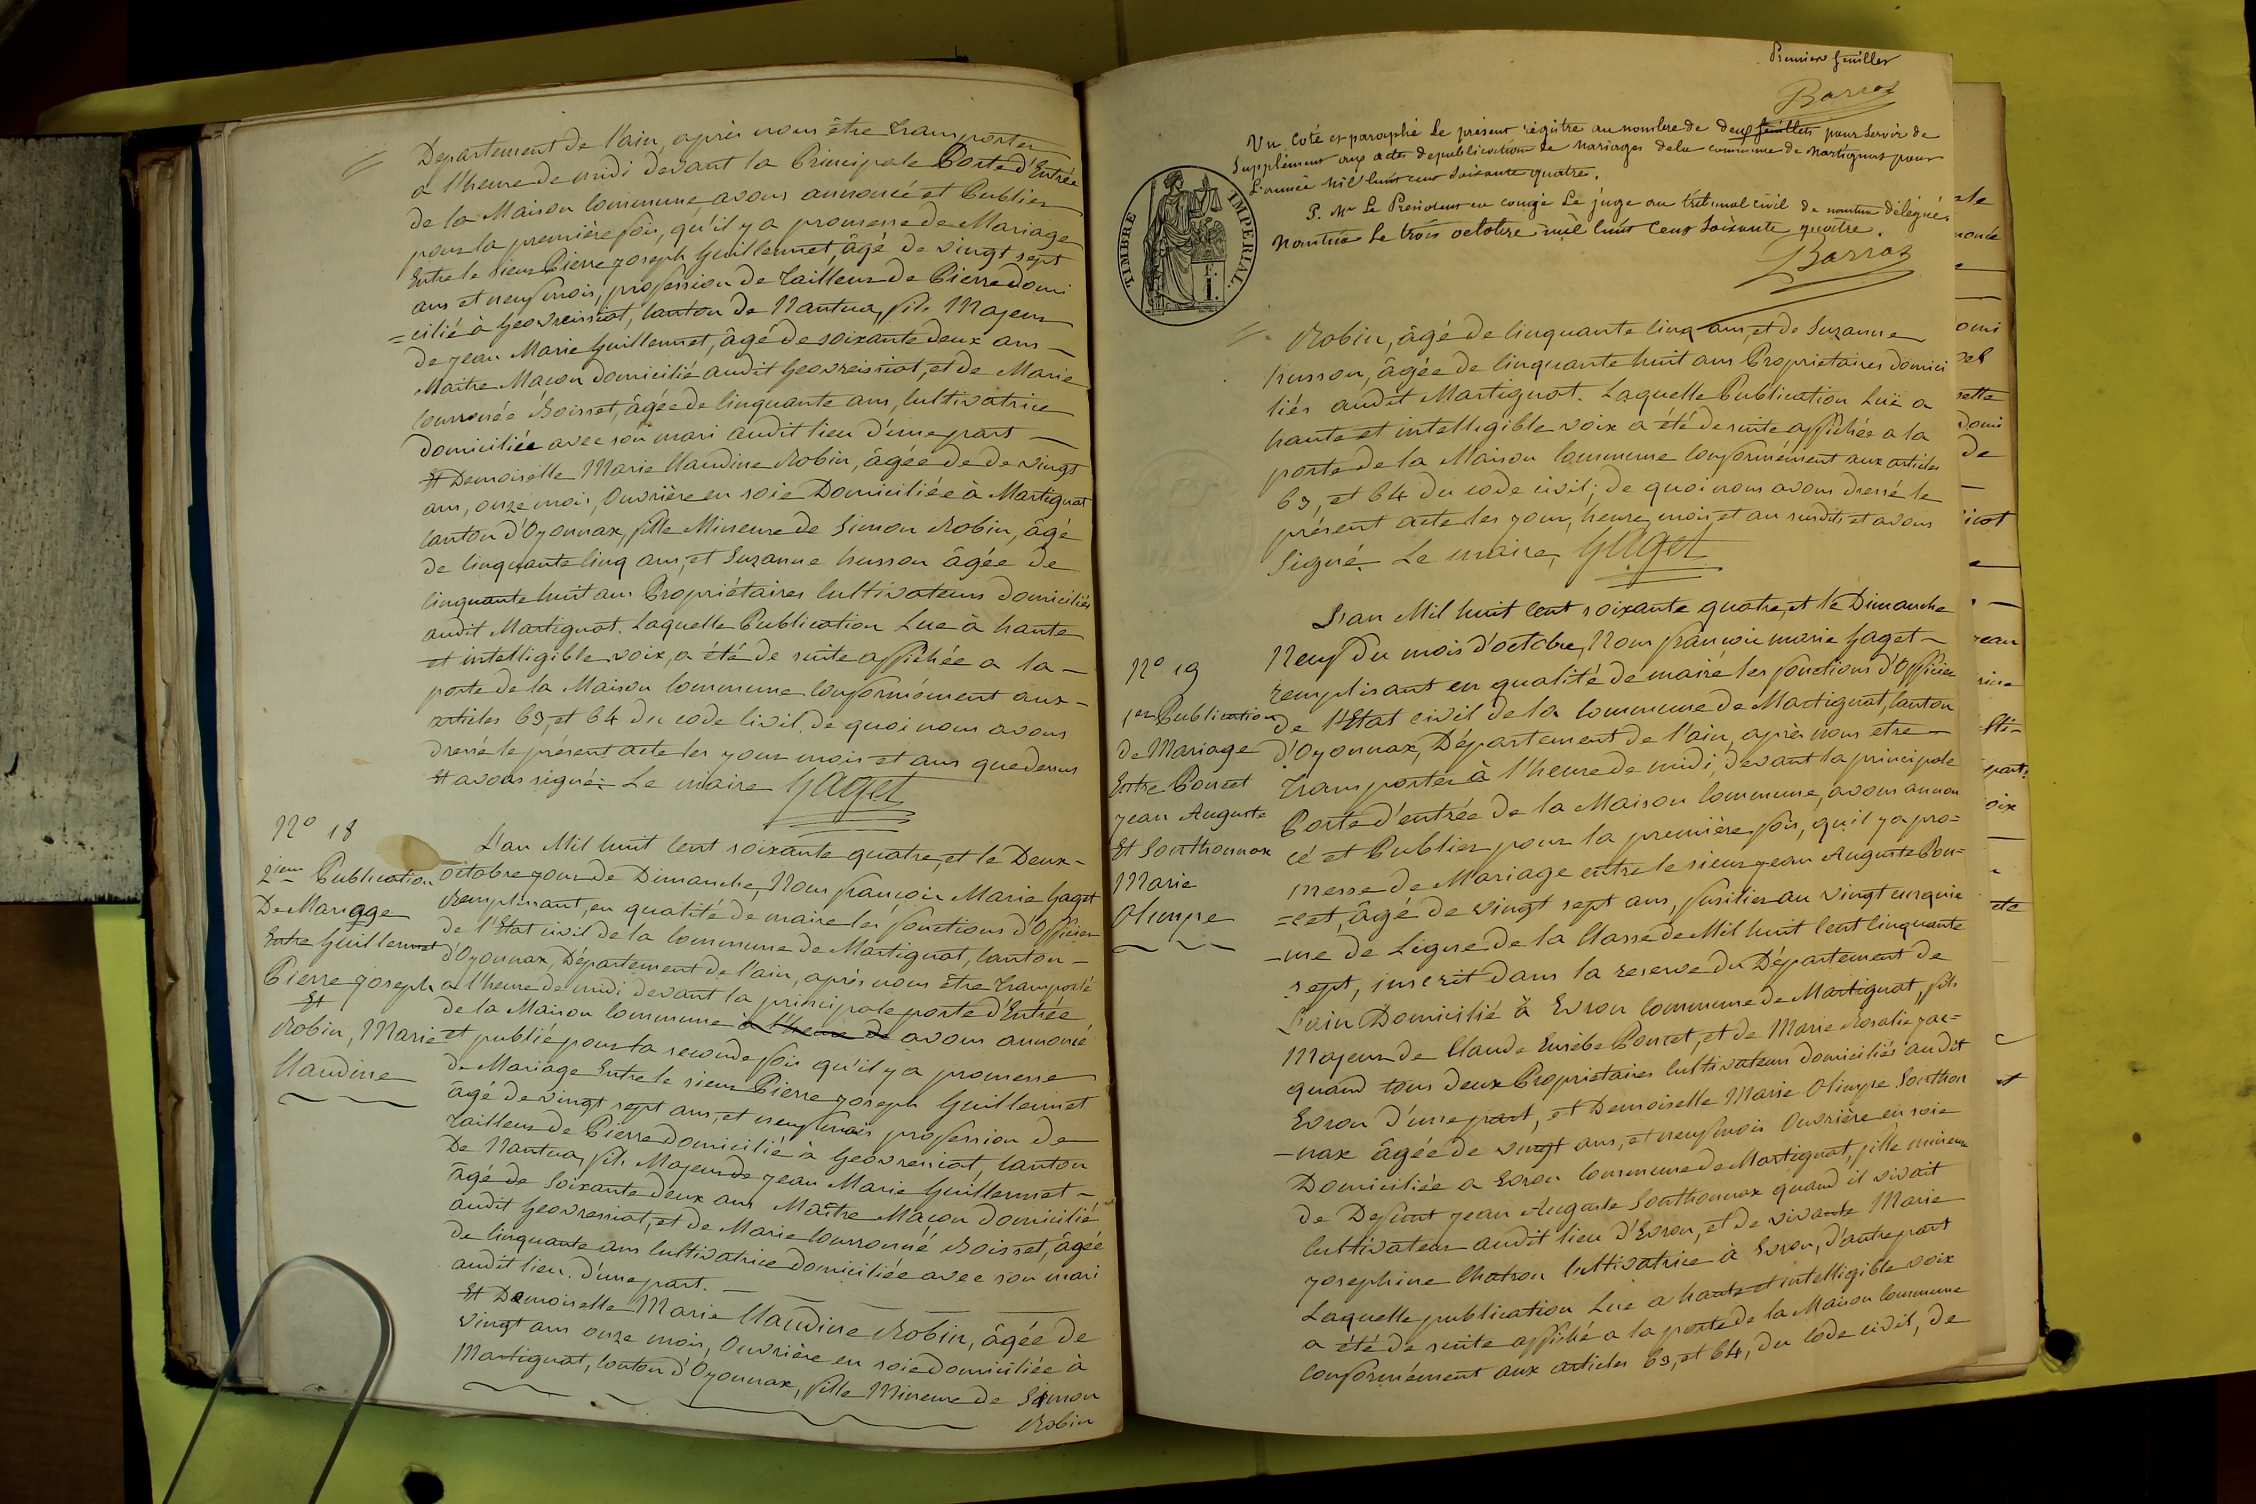 Département de l'ain, après nous être transporter
a l'heure de midi devant la Principale Porte d'Entrée
de la Maison Commune avons annoncé et Publier
pour la première fois, qu'il y a promesse de Mariage
Entre le sieur Pierre Joseph Guillermet, âgé de vingt sept
ans et neuf mois, profession de tailleur de Pierre domi
=cilié à Geovreissiat, Canton de Nantua, fils Majeur
de Jean Marie Guillermet, âgé de soixante deux ans —
Maître Maçon domicilié audit Geovreissiat, et de Marie
Couronée Roisset, âgée de Cinquante ans, Cultivatrice
domiciliée avec son mari audit lieu d'une part —
Et Demoiselle Marie Claudine Robin, âgée de de vingt
ans, onze mois, Ouvrière en soie Domiciliée à Martignat
Canton d'Oyonnax, fille Mineure de Simon Robin, âgé
de Cinquante Cinq ans, et Suzanne husson âgée de
Cinquante huit ans Propriétaires Cultivateurs domiciliés
audit Martignat. Laquelle Publication Lue à haute
et intelligible voix, a été de suite affichée a la —
porte de la Maison Commune Conformément aux —
articles 63, et 64 du code Civil, de quoi nous avons
dressé le présent acte les jour mois et ans que dessus
Et avons signé. Le maire Gaget
N° 18
2ième Publication
De Mariage
Entre Guillermet
Pierre Joseph
Et
Robin, Marie
Claudine
L'an Mil huit Cent soixante quatre, et le Deux —
octobre jour de Dimanche, Nous françois Marie Gaget
Remplissant, en qualité de maire les fonctions d'Officier
de l'Etat civil de la Commune de Martignat, Canton —
d'Oyonnax, Département de l'ain, après nous être transporté
a l'heure de midi devant la principale porte d'Entrée
de la Maison Commune à l'heure de avons annoncé
et publié pour la seconde fois qu'il y a promesse
de Mariage Entre le sieur Pierre Joseph Guillermet
âgé de vingt sept ans, et neuf mois profession de
tailleur de Pierre domicilié à Geovressiat, Canton
De Nantua, fils Majeur de Jean Marie Guillermet —
âgé de Soixante deux ans Maître Maçon domicilié
audit Geovressiat, et de Marie Couronné Roisset, âgée
de Cinquante ans Cultivatrice domiciliée avec son mari
audit lieu. d'une part. —
Et Demoiselle Marie Claudine Robin, âgée de
vingt ans onze mois, Ouvrière en soie domiciliée à
Martignat, Canton d'Oyonnax, fille Mineure de Simon
Robin
Premier feuillet
Barraz
Vu, Coté et paraphé Le présent régistre au nombre de deux feuillets pour Servir de
Supplément aux actes de publication de Mariages de la commune de Martignat pour
L'année mil huit cent Soixante quatre.
P. Mr Le Président en congé Le juge au tribunal civil de nantua délégué
Nantua Le trois octobre mil huit Cent Soixante quatre.
Barraz
TIMBRE IMPERIAL.
Robin, âgé de Cinquante Cinq ans, et de Suzanne
husson, âgée de Cinquante huit ans Propriétaires domici
liés audit Martignat. Laquelle Publication Luë a
haute et intelligible voix a été de suite affichée a la
porte de la Maison Commune Conformément aux articles
63, et 64 du code civil; de quoi nous avons dressé le
présent acte les jour, heure, mois, et an susdits et avons
Signé. Le maire, Gaget
N° 19
1er Publication
de Mariage
Entre Poncet
Jean Auguste
Et Sonthonnax
Marie
Olimpe
L'an Mil huit Cent soixante quatre, et le Dimanche
Neuf du mois d'octobre, Nous francois marie Gaget —
remplisant en qualité de maire les fonctions d'Officier
de l'Etat civil de la Commune de Martignat, Canton
d'Oyonnax, Département de l'ain, après nous etre —
transportés à l'heure de midi, devant la principale
Porte d'entrée de la Maison Commune, avons annon
cé et Publier pour la première fois, qu'il y a pro=
messe de Mariage entre le sieur Jean Auguste Pon=
=cet, âgé de vingt sept ans, fusilier au vingt cinquie
-me de Ligne de la Classe de Mil huit Cent Cinquante
sept, inscrit dans la reserve du Département de
L'ain Domicilié à Evron Commune de Martignat, fils
Majeur de Claude Eusèbe Poncet, et de Marie Rosalie Jac=
quand tous deux Propriétaires Cultivateurs domiciliés audit
Evron d'une part, et Demoiselle Marie Olimpe Sonthon
-nax âgée de vingt ans, et neuf mois Ouvrière en soie
Domiciliée a Evron Commune de Martignat, fille mineure
de Defunt Jean Auguste Sonthonnax quand il vivait
Cultivateur audit lieu d'Evron, et de vivante Marie
Josephine Chatron Cultivatrice à Evron, d'autre part
Laquelle publication Lue a haute et intelligible voix
a été de suite affiché a la porte de la Maison Commune
Conformément aux articles 63, et 64, du Code civil, de